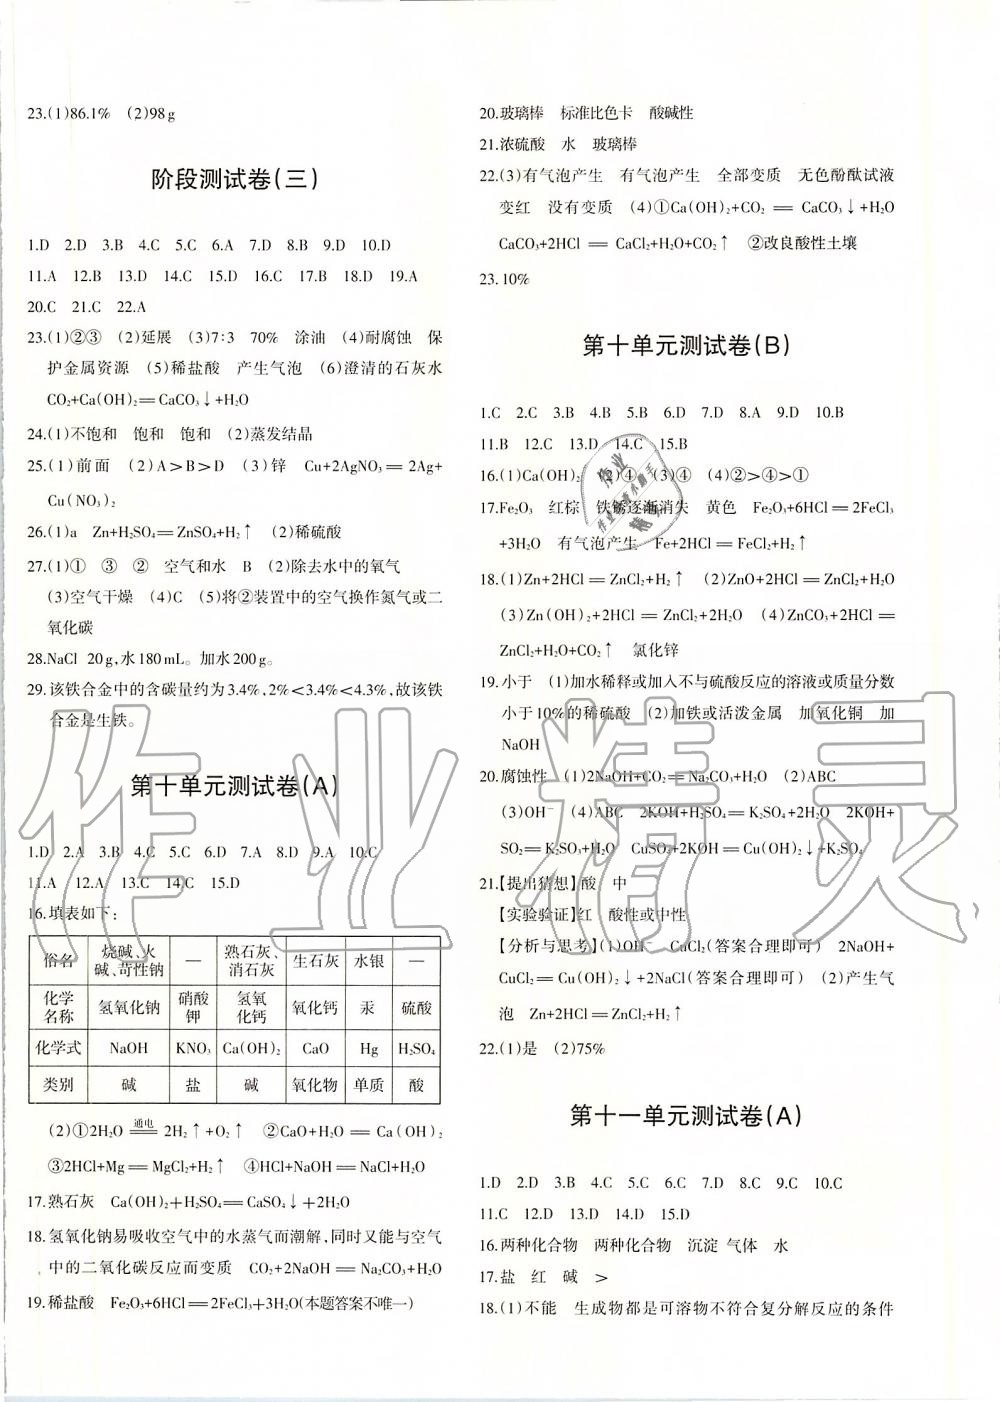 23.(1)86.1%　(2)98 g
阶段测试卷(三)
1.D　2.D　3.B　4.C　5.C　6.A　7.D　8.B　9.D　10.D
11.A　12.B　13.D　14.C　15.D　16.C　17.B　18.D　19.A
20.C　21.C　22.A
23.(1)②③　(2)延展　(3)7∶3　70%　涂油　(4)耐腐蚀　保
护金属资源　(5)稀盐酸　产生气泡　(6)澄清的石灰水
CO₂+Ca(OH)₂═CaCO₃↓+H₂O
24.(1)不饱和　饱和　饱和　(2)蒸发结晶
25.(1)前面　(2)A>B>D　(3)锌　Cu+2AgNO₃═2Ag+
Cu(NO₃)₂
26.(1)a　Zn+H₂SO₄═ZnSO₄+H₂↑　(2)稀硫酸
27.(1)①　③　②　空气和水　B　(2)除去水中的氧气
(3)空气干燥　(4)C　(5)将②装置中的空气换作氮气或二
氧化碳
28.NaCl　20 g,水180 mL。加水200 g。
29.该铁合金中的含碳量约为3.4%,2%<3.4%<4.3%,故该铁
合金是生铁。
第十单元测试卷(A)
1.D　2.A　3.B　4.C　5.C　6.D　7.A　8.D　9.A　10.C
11.A　12.A　13.C　14.C　15.D
16.填表如下:
俗名　烧碱、火碱、苛性钠　—　熟石灰、消石灰　生石灰　水银　—
化学名称　氢氧化钠　硝酸钾　氢氧化钙　氧化钙　汞　硫酸
化学式　NaOH　KNO₃　Ca(OH)₂　CaO　Hg　H₂SO₄
类别　碱　盐　碱　氧化物　单质　酸
(2)①2H₂O 通电═ 2H₂↑+O₂↑　②CaO+H₂O═Ca(OH)₂
③2HCl+Mg═MgCl₂+H₂↑　④HCl+NaOH═NaCl+H₂O
17.熟石灰　Ca(OH)₂+H₂SO₄═CaSO₄↓+2H₂O
18.氢氧化钠易吸收空气中的水蒸气而潮解,同时又能与空气
中的二氧化碳反应而变质　CO₂+2NaOH═Na₂CO₃+H₂O
19.稀盐酸　Fe₂O₃+6HCl═2FeCl₃+3H₂O(本题答案不唯一)
20.玻璃棒　标准比色卡　酸碱性
21.浓硫酸　水　玻璃棒
22.(3)有气泡产生　有气泡产生　全部变质　无色酚酞试液
变红　没有变质　(4)①Ca(OH)₂+CO₂═CaCO₃↓+H₂O
CaCO₃+2HCl═CaCl₂+H₂O+CO₂↑　②改良酸性土壤
23.10%
第十单元测试卷(B)
1.C　2.C　3.B　4.B　5.B　6.D　7.D　8.A　9.D　10.B
11.B　12.C　13.D　14.C　15.B
16.(1)Ca(OH)₂　(2)④　(3)④　(4)②>④>①
17.Fe₂O₃　红棕　铁锈逐渐消失　黄色　Fe₂O₃+6HCl═2FeCl₃
+3H₂O　有气泡产生　Fe+2HCl═FeCl₂+H₂↑
18.(1)Zn+2HCl═ZnCl₂+H₂↑　(2)ZnO+2HCl═ZnCl₂+H₂O
(3)Zn(OH)₂+2HCl═ZnCl₂+2H₂O　(4)ZnCO₃+2HCl═
ZnCl₂+H₂O+CO₂↑　氯化锌
19.小于　(1)加水稀释或加入不与硫酸反应的溶液或质量分数
小于10%的稀硫酸　(2)加铁或活泼金属　加氧化铜　加
NaOH
20.腐蚀性　(1)2NaOH+CO₂═Na₂CO₃+H₂O　(2)ABC
(3)OH⁻　(4)ABC　2KOH+H₂SO₄═K₂SO₄+2H₂O　2KOH+
SO₂═K₂SO₃+H₂O　CuSO₄+2KOH═Cu(OH)₂↓+K₂SO₄
21.【提出猜想】酸　中
【实验验证】红　酸性或中性
【分析与思考】(1)OH⁻　CuCl₂(答案合理即可)　2NaOH+
CuCl₂═Cu(OH)₂↓+2NaCl(答案合理即可)　(2)产生气
泡　Zn+2HCl═ZnCl₂+H₂↑
22.(1)是　(2)75%
第十一单元测试卷(A)
1.D　2.D　3.B　4.C　5.C　6.C　7.D　8.C　9.C　10.C
11.C　12.D　13.D　14.D　15.D
16.两种化合物　两种化合物　沉淀　气体　水
17.盐　红　碱　>
18.(1)不能　生成物都是可溶物不符合复分解反应的条件
作业精灵